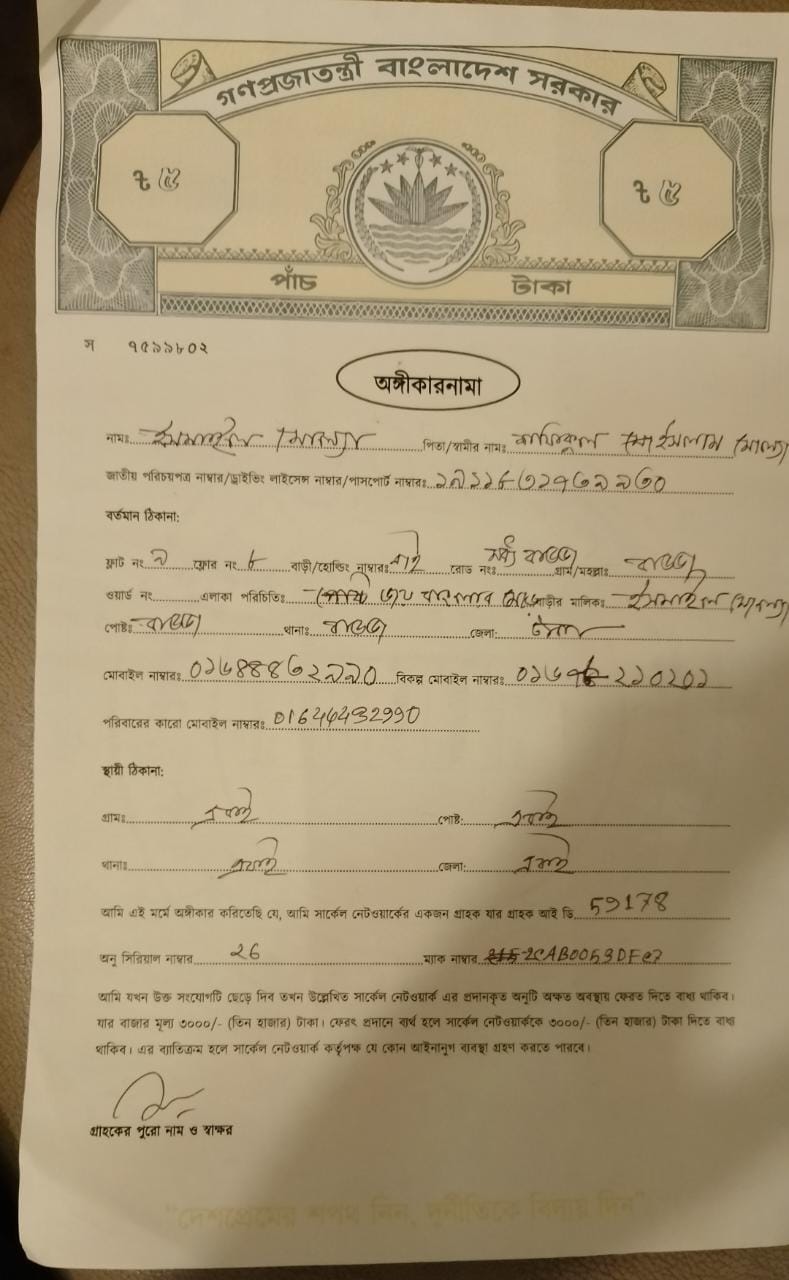 গণপ্রজাতন্ত্রী বাংলাদেশ সরকার
৳ ৫ ৳ ৫
পাঁচ টাকা
স ৭৫৯৯৮০২
অঙ্গীকারনামা
নামঃ ইসমাইল মোল্যা পিতা/স্বামীর নামঃ ইসলাম মোল্যা
জাতীয় পরিচয়পত্র নাম্বার/ড্রাইভিং লাইসেন্স নাম্বার/পাসপোর্ট নাম্বারঃ
বর্তমান ঠিকানা:
ফ্লাট নং ৯ ফ্লোর নং ৮ বাড়ী/হোল্ডিং নাম্বারঃ রোড নংঃ মধ্য বাড্ডা গ্রাম/মহল্লাঃ বাড্ডা
ওয়ার্ড নং এলাকা পরিচিতিঃ বাড়ীর মালিক: ইসমাইল মোল্যা
পোষ্টঃ বাড্ডা থানাঃ বাড্ডা জেলা: ঢাকা
মোবাইল নাম্বারঃ বিকল্প মোবাইল নাম্বারঃ
পরিবারের কারো মোবাইল নাম্বারঃ 01644432990
স্থায়ী ঠিকানা:
গ্রামঃ একই পোষ্ট: একই
থানাঃ একই জেলা: একই
আমি এই মর্মে অঙ্গীকার করিতেছি যে, আমি সার্কেল নেটওয়ার্কের একজন গ্রাহক যার গ্রাহক আই ডি 59178
অনু সিরিয়াল নাম্বার ২৬ ম্যাক নাম্বার
আমি যখন উক্ত সংযোগটি ছেড়ে দিব তখন উল্লেখিত সার্কেল নেটওয়ার্ক এর প্রদানকৃত অনুটি অক্ষত অবস্থায় ফেরত দিতে বাধ্য থাকিব।
যার বাজার মূল্য ৩০০০/- (তিন হাজার) টাকা। ফেরৎ প্রদানে ব্যর্থ হলে সার্কেল নেটওয়ার্ককে ৩০০০/- (তিন হাজার) টাকা দিতে বাধ্য
থাকিব। এর ব্যতিক্রম হলে সার্কেল নেটওয়ার্ক কর্তৃপক্ষ যে কোন আইনানুগ ব্যবস্থা গ্রহণ করতে পারবে।
গ্রাহকের পুরো নাম ও স্বাক্ষর
"দেশপ্রেমের শপথ নিন, দুর্নীতিকে বিদায় দিন"